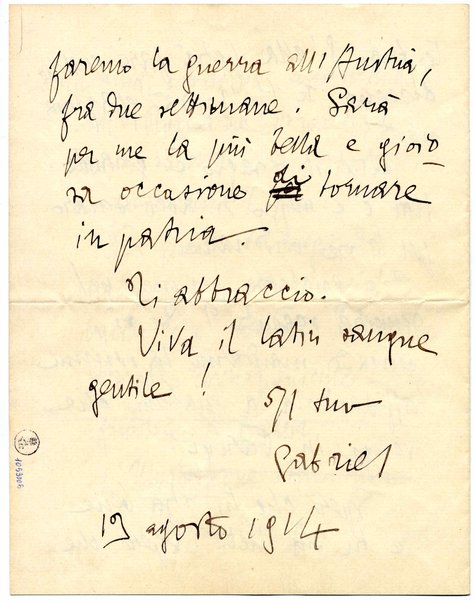 faremo la guerra all'Austria,
fra due settimane. Sarà
per me la più bella e gioio
sa occasione di tornare
in patria.
Ti abbraccio.
Viva il latin sangue
gentile!
Il tuo
Gabriel
13 agosto 1914